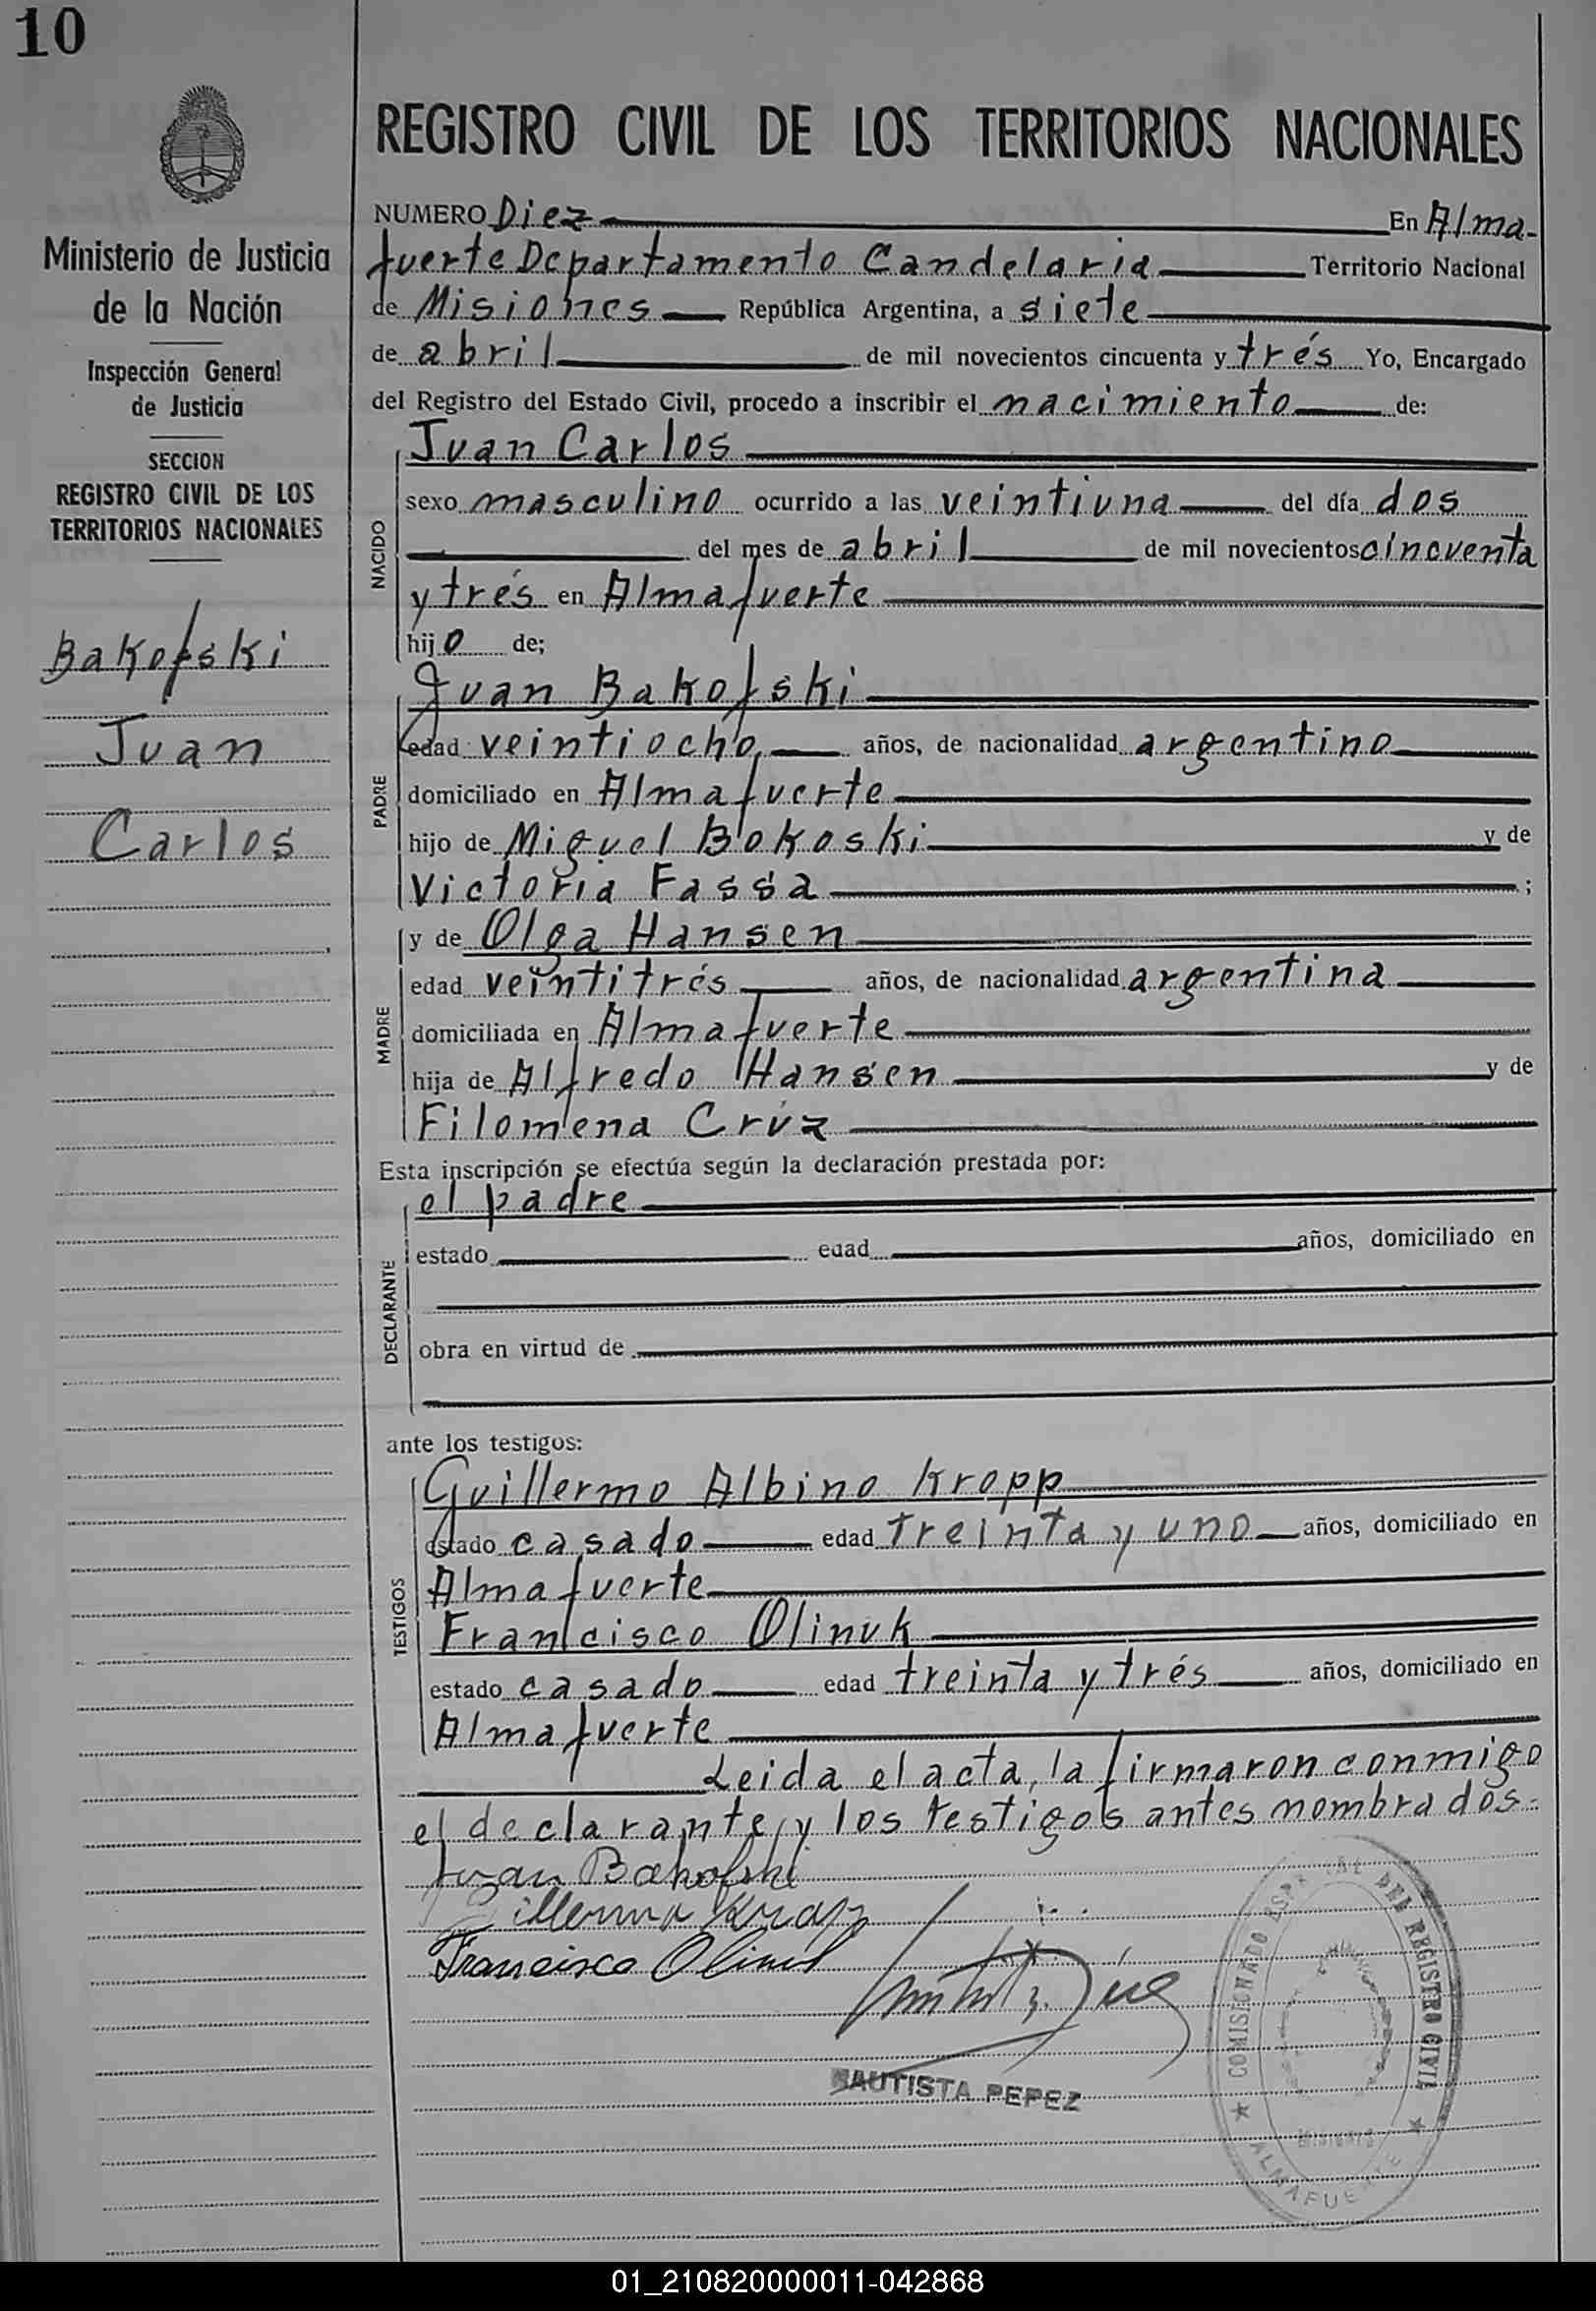 10
REGISTRO CIVIL DE LOS TERRITORIOS NACIONALES
Ministerio de Justicia
de la Nación
Inspección General
de Justicia
SECCION
REGISTRO CIVIL DE LOS
TERRITORIOS NACIONALES
Bakofski
Juan
Carlos
NUMERO Diez En Alma-
fuerte Departamento Candelaria Territorio Nacional
de Misiones República Argentina, a siete
de abril de mil novecientos cincuenta y trés Yo, Encargado
del Registro del Estado Civil, procedo a inscribir el nacimiento de:
NACIDO
Juan Carlos
sexo masculino ocurrido a las veintiuna del día dos
del mes de abril de mil novecientos cincuenta
y trés en Almafuerte
hijo de;
PADRE
Juan Bakofski
edad veintiocho años, de nacionalidad argentino
domiciliado en Almafuerte
hijo de Miguel Bokoski y de
Victoria Fassa ;
MADRE
y de Olga Hansen
edad veintitrés años, de nacionalidad argentina
domiciliada en Almafuerte
hija de Alfredo Hansen y de
Filomena Crúz
Esta inscripción se efectúa según la declaración prestada por:
DECLARANTE
el padre
estado edad años, domiciliado en
obra en virtud de
ante los testigos:
TESTIGOS
Guillermo Albino Kropp
estado casado edad treinta y uno años, domiciliado en
Almafuerte
Francisco Olinuk
estado casado edad treinta y trés años, domiciliado en
Almafuerte
Leida el acta, la firmaron conmigo
el declarante, y los testigos antes nombrados.
Juan Bakofski
Francisco Olinuk
BAUTISTA PEPEZ
COMISIONADO DEL REGISTRO CIVIL
MISIONES
ALMAFUERTE
01_210820000011-042868